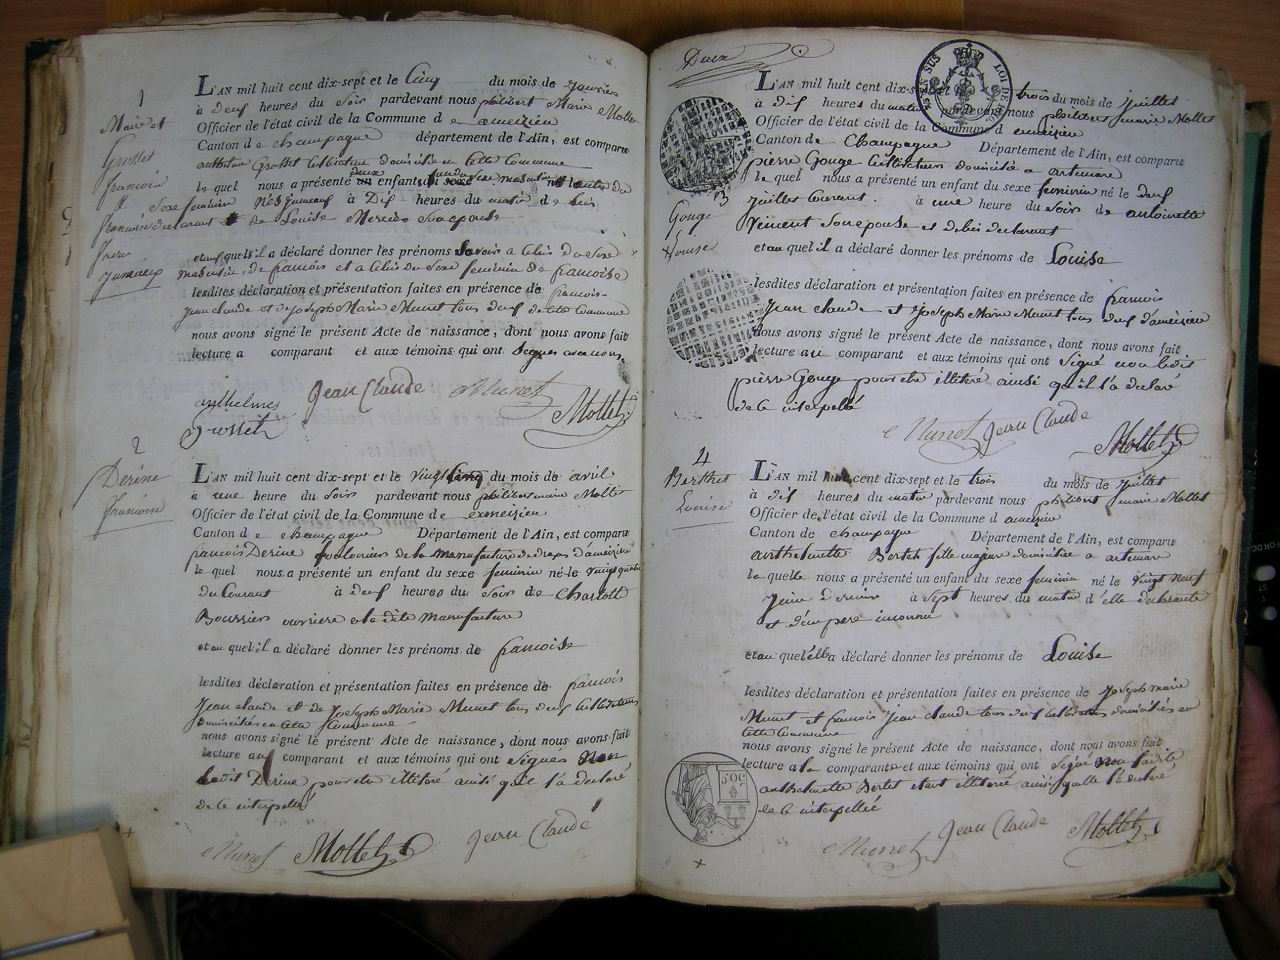 1
Mari et
Grosset
francois
et
francoise
frere
Jumeaux
L'AN mil huit cent dix-sept et le Cinq du mois de janvier
à deux heures du Soir pardevant nous philibert Marie Mollet
Officier de l'état civil de la Commune d e ameizieu
Canton d e champagne département de l'Ain, est comparu
anthelme Grosset Cultivateur domicilié en cette Commune
le quel nous a présenté deux enfants du sexe masculin
Sexe feminin Nés à Dix heures du matin de lui
declarant & de Louise Mercier Son epouse
et auquels il a déclaré donner les prénoms Savoir a Celui du Sexe
masculin, de francois et a Celui du Sexe feminin de francoise
lesdites déclaration et présentation faites en présence de francois
jean claude et de joseph Marie Munet tous deux de cette Commune
nous avons signé le présent Acte de naissance, dont nous avons fait
lecture a comparant et aux témoins qui ont Signés avec nous
anthelme grosset Jean Claude Munet Mollet
2
Derine
francoise
L'AN mil huit cent dix-sept et le vingt Cinq du mois de avril
à une heure du Soir pardevant nous philibert marie Mollet
Officier de l'état civil de la Commune de exmeizieu
Canton d e champagne Département de l'Ain, est comparu
francois Derine foulonier de la Manufacture de draps d'ameizieu
le quel nous a présenté un enfant du sexe feminin né le vingt quatre
du Courant à deux heures du Soir de Charlotte
Boursier ouvriere a la dite manufacture
et au quel il a déclaré donner les prénoms de francoise
lesdites déclaration et présentation faites en présence de francois
jean claude et de Joseph Marie Munet tous deux Cultivateurs
domiciliés en cette Commune
nous avons signé le présent Acte de naissance, dont nous avons fait
lecture au comparant et aux témoins qui ont Signés Non
Ledit Derine pour etre illitéré ainsi qu'il l'a declaré
de ce interpellé
Munet Mollet Jean Claude
Deux
EN SUS LOI DE
3
Gouge
Louise
L'AN mil huit cent dix-sept et le trois du mois de juillet
à dix heures du matin pardevant nous philibert marie Mollet
Officier de l'état civil de la Commune d exmeizieu
Canton de Champagne Département de l'Ain, est comparu
pierre Gouge Cultivateur domicilié a artemare
le quel nous a présenté un enfant du sexe feminin né le deux
juillet Courant. à une heure du Soir de antoinette
Vincent Son epouse et de lui declarant
et au quel il a déclaré donner les prénoms de Louise
lesdites déclaration et présentation faites en présence de francois
Jean claude et joseph Marie Munet tous deux d'ameizieu
nous avons signé le présent Acte de naissance, dont nous avons fait
lecture au comparant et aux témoins qui ont Signé non ledit
pierre Gouge pour etre illitéré ainsi qu'il l'a declaré
de ce interpellé
Munet Jean Claude Mollet
4
Berthet
Louise
L'AN mil huit cent dix-sept et le trois du mois de juillet
à dix heures du matin pardevant nous philibert marie Mollet
Officier de l'état civil de la Commune d ameizieu
Canton de champagne Département de l'Ain, est comparu
anthelmette Bertet fille majeure domiciliée a artemare
le quelle nous a présenté un enfant du sexe feminin né le vingt neuf
Juin dernier à Sept heures du matin d'elle declarante
et d'un pere inconnu
et au quel elle a déclaré donner les prénoms de Louise
lesdites déclaration et présentation faites en présence de Joseph marie
Munet et francois Jean claude tous deux Cultivateurs domiciliés en
cette Commune
nous avons signé le présent Acte de naissance, dont nous avons fait
lecture a la comparante et aux témoins qui ont Signé Non ladite
anthelmette Bertet etant illitérée ainsi qu'elle l'a declaré
de ce interpellée
Munet Jean Claude Mollet
SOC